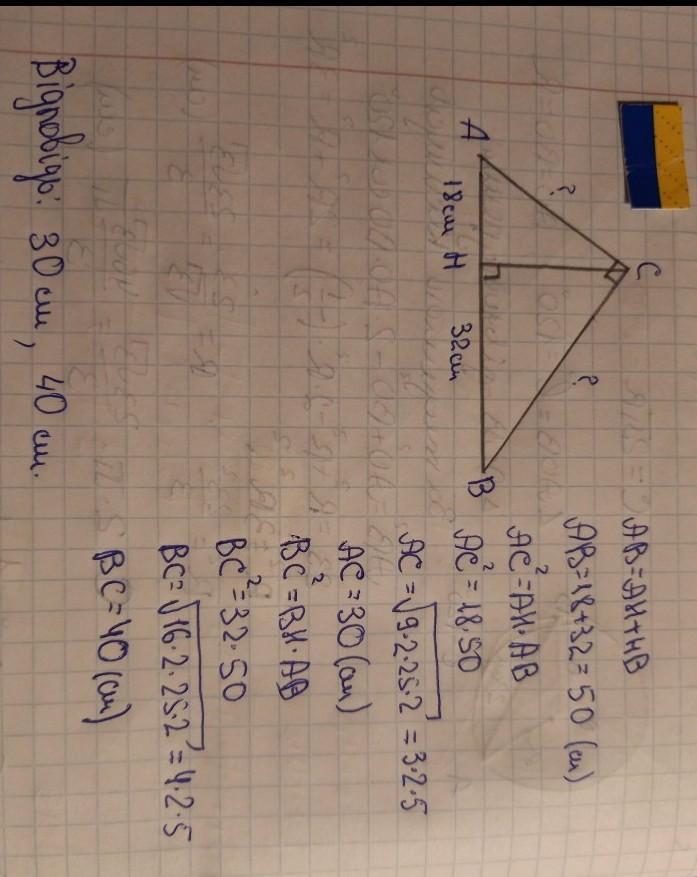 C
?
?
A
18см
H
32см
B
AB=AH+HB
AB=18+32=50 (см)
AC²=AH·AB
AC²=18·50
AC=√9·2·25·2=3·2·5
AC=30(см)
BC²=BH·AB
BC²=32·50
BC=√16·2·25·2=4·2·5
BC=40(см)
Відповідь: 30 см, 40 см.